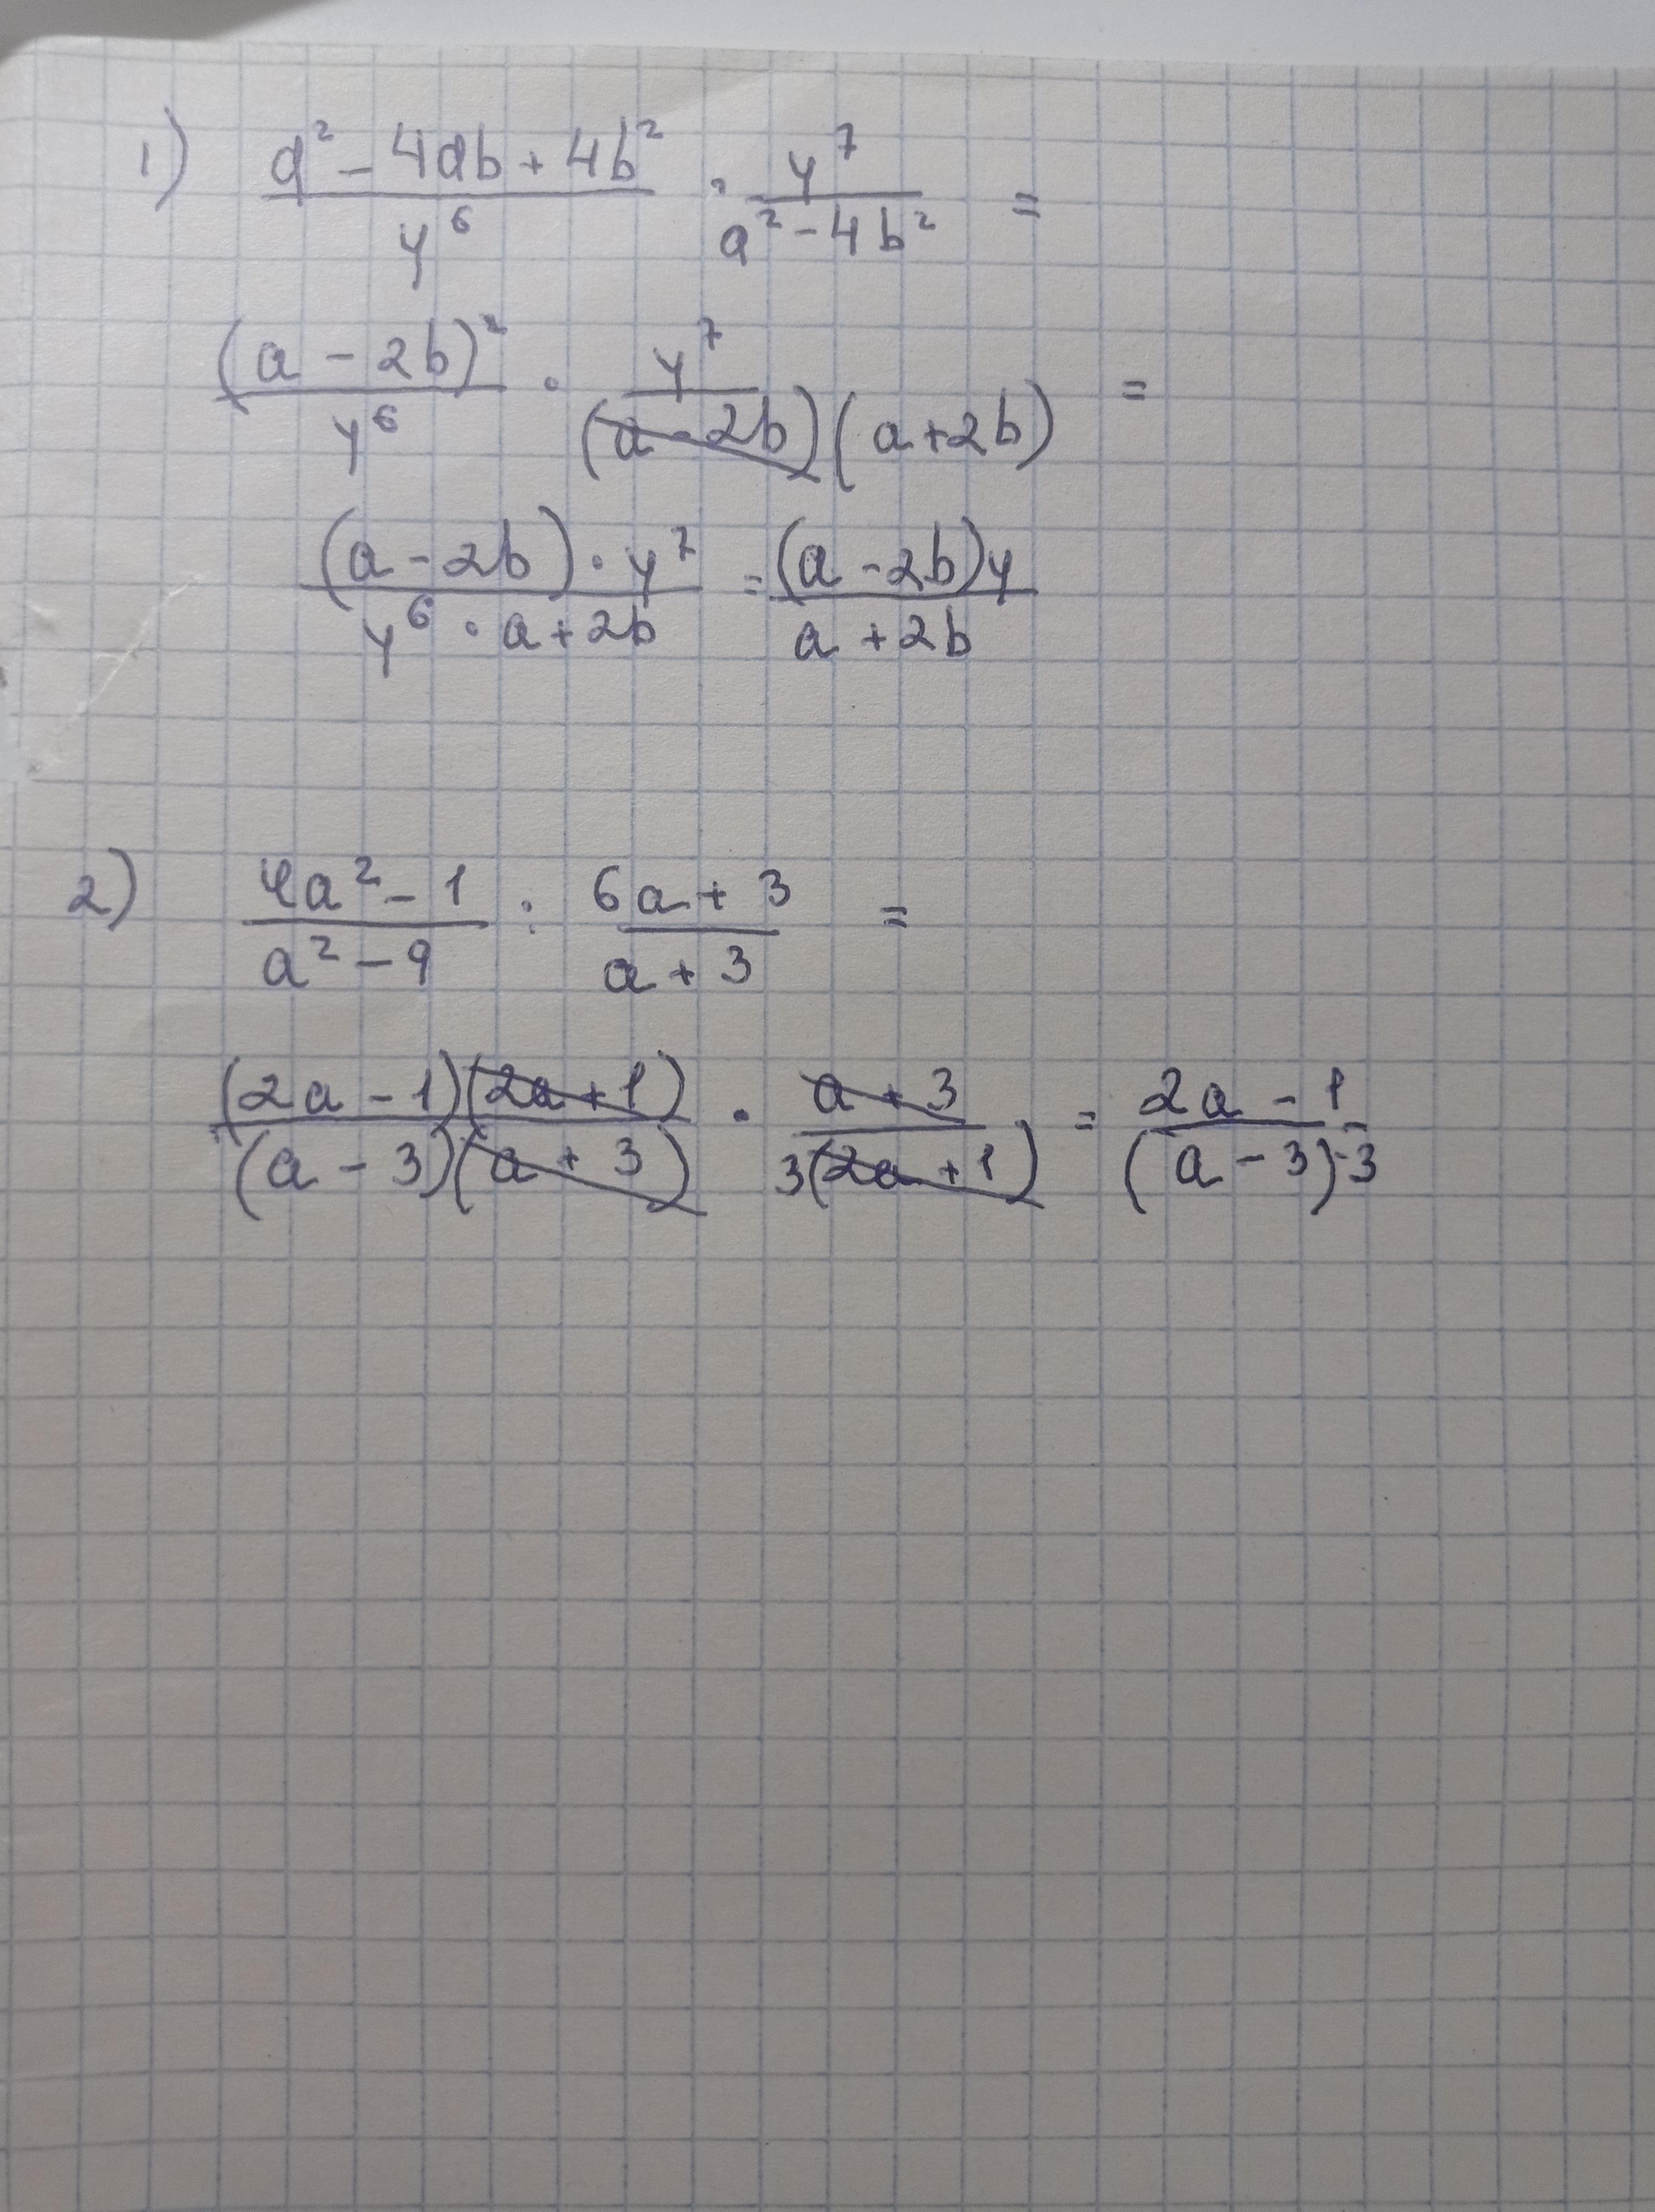 1) (a² - 4ab + 4b²)/y⁶ · y⁷/(a² - 4b²) =
(a - 2b)²/y⁶ · y⁷/((a - 2b)(a + 2b)) =
(a - 2b) · y⁷/y⁶ · a + 2b = (a - 2b)y/a + 2b
2) (4a² - 1)/(a² - 9) : (6a + 3)/(a + 3) =
(2a - 1)(2a + 1)/(a - 3)(a + 3) · a + 3/3(2a + 1) = 2a - 1/(a - 3)·3